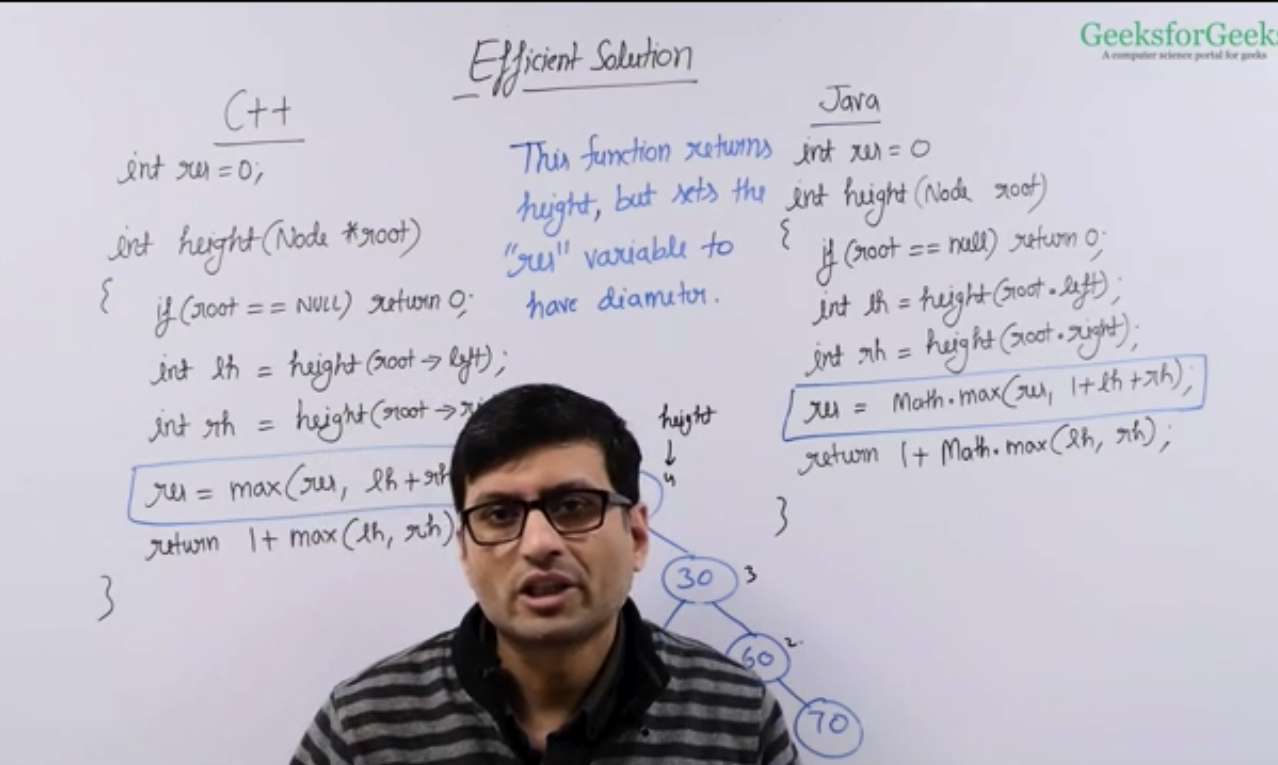 GeeksforGeeks
A computer science portal for geeks
Efficient Solution
C++
int res = 0;
int height(Node *root)
{
if(root == NULL) return 0;
int lh = height(root → left);
int rh = height(root →
res = max(res, lh + rh
return 1 + max(lh, rh)
}
This function returns
height, but sets the
"res" variable to
have diameter.
Java
int res = 0
int height(Node root)
{
if(root == null) return 0;
int lh = height(root.left);
int rh = height(root.right);
res = Math.max(res, 1+lh+rh);
return 1 + Math.max(lh, rh);
}
height
↓
4
30 3
60 2
70